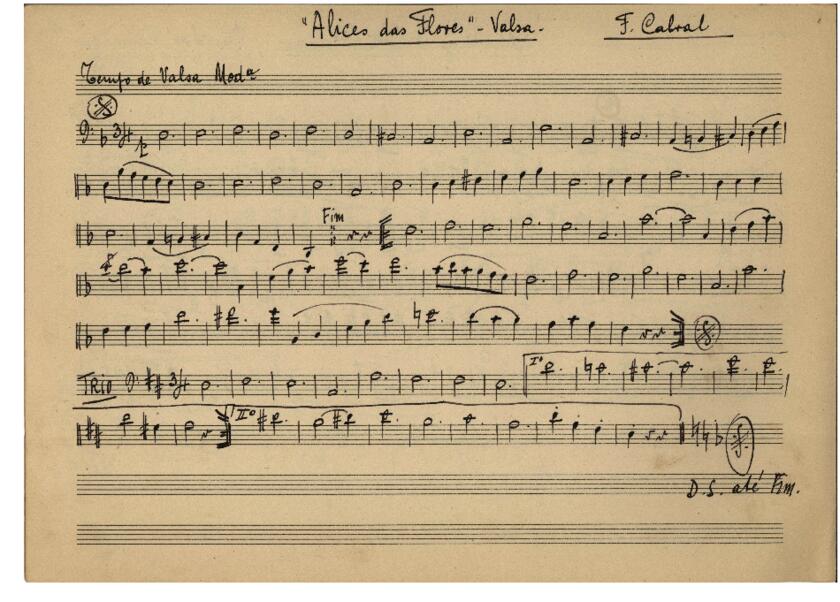 "Alices das Flores" - Valsa. F. Cabral
Tempo de Valsa Modº
p
Fim
TRIO
Iº
IIº
D. S. até Fim.